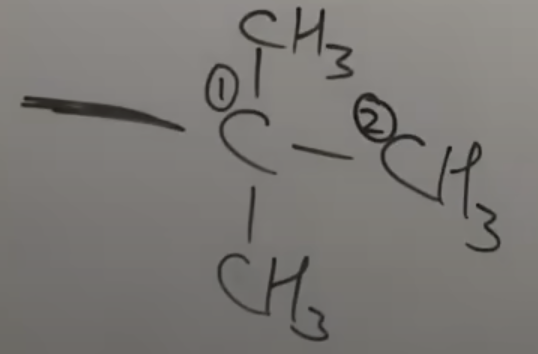 CH3
① ②
C CH3
CH3